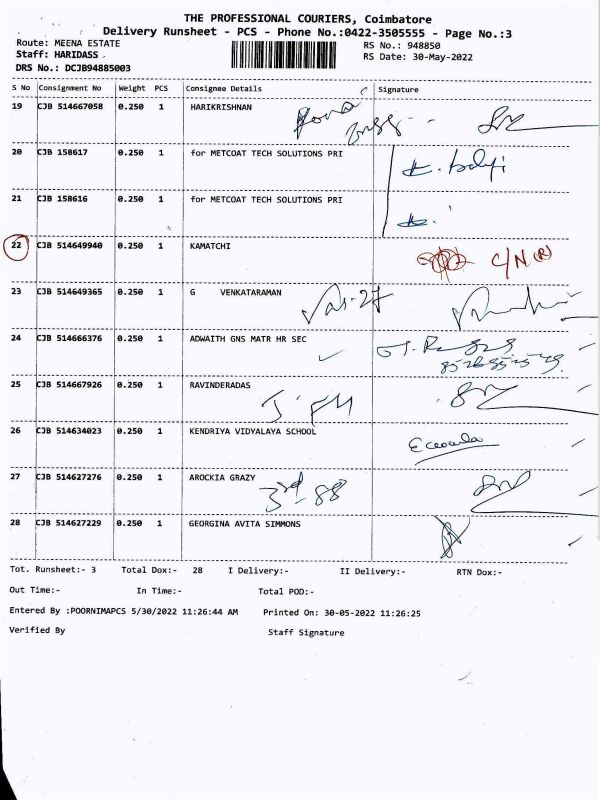 THE PROFESSIONAL COURIERS, Coimbatore
Delivery Runsheet - PCS - Phone No.:0422-3505555 - Page No.:3
Route: MEENA ESTATE RS No.: 948850
Staff: HARIDASS . RS Date: 30-May-2022
DRS No.: DCJB94885003
S No Consignment No Weight PCS Consignee Details Signature
19 CJB 514667058 0.250 1 HARIKRISHNAN
20 CJB 158617 0.250 1 for METCOAT TECH SOLUTIONS PRI
21 CJB 158616 0.250 1 for METCOAT TECH SOLUTIONS PRI
22 CJB 514649940 0.250 1 KAMATCHI C/N (R)
23 CJB 514649365 0.250 1 G VENKATARAMAN
24 CJB 514666376 0.250 1 ADWAITH GNS MATR HR SEC
25 CJB 514667926 0.250 1 RAVINDERADAS
26 CJB 514634023 0.250 1 KENDRIYA VIDYALAYA SCHOOL
27 CJB 514627276 0.250 1 AROCKIA GRAZY 3rd - 88
28 CJB 514627229 0.250 1 GEORGINA AVITA SIMMONS
Tot. Runsheet:- 3 Total Dox:- 28 I Delivery:- II Delivery:- RTN Dox:-
Out Time:- In Time:- Total POD:-
Entered By :POORNIMAPCS 5/30/2022 11:26:44 AM Printed On: 30-05-2022 11:26:25
Verified By Staff Signature